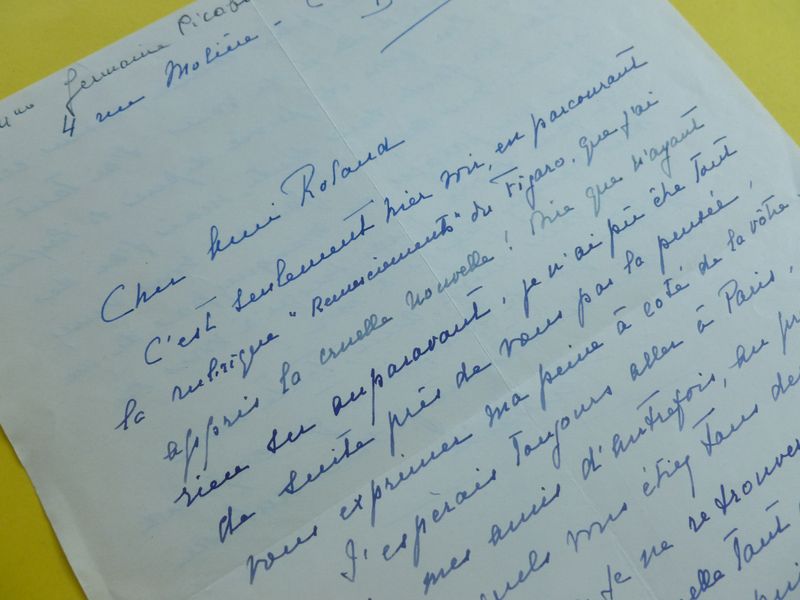 Mme Germaine Picabia
4 rue Molière -
Cher ami Roland
C'est seulement hier soir, en parcourant
la rubrique "Remerciements" du Figaro. que j'ai
appris la cruelle nouvelle! Mie que n'ayant
rien su auparavant, je n'ai pu être tout
de suite près de vous par la pensée,
vous exprimer ma peine à coté de la vôtre.
J'espérais toujours aller à Paris,
mes amis d'autrefois, au
quels vous étiez tous
Je ne retrouver
elle tant